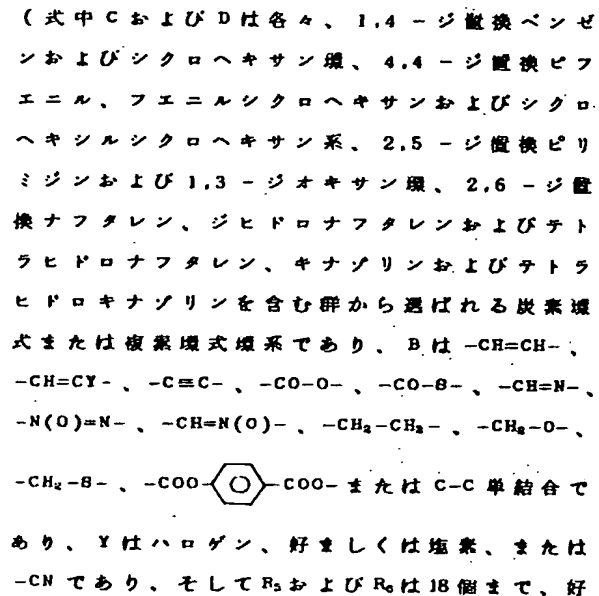 (式中CおよびDは各々、1,4-ジ置換ベンゼ
ンおよびシクロヘキサン環、4,4-ジ置換ビフ
エニル、フエニルシクロヘキサンおよびシクロ
ヘキシルシクロヘキサン系、2,5-ジ置換ピリ
ミジンおよび1,3-ジオキサン環、2,6-ジ置
換ナフタレン、ジヒドロナフタレンおよびテト
ラヒドロナフタレン、キナゾリンおよびテトラ
ヒドロキナゾリンを含む群から選ばれる炭素環
式または複素環式環系であり、Bは-CH=CH-、
-CH=CY-、-C≡C-、-CO-O-、-CO-S-、-CH=N-、
-N(O)=N-、-CH=N(O)-、-CH₂-CH₂-、-CH₂-O-、
-CH₂-S-、-COO-COO-またはC-C単結合で
あり、Yはハロゲン、好ましくは塩素、または
-CNであり、そしてR₅およびR₆は18個まで、好